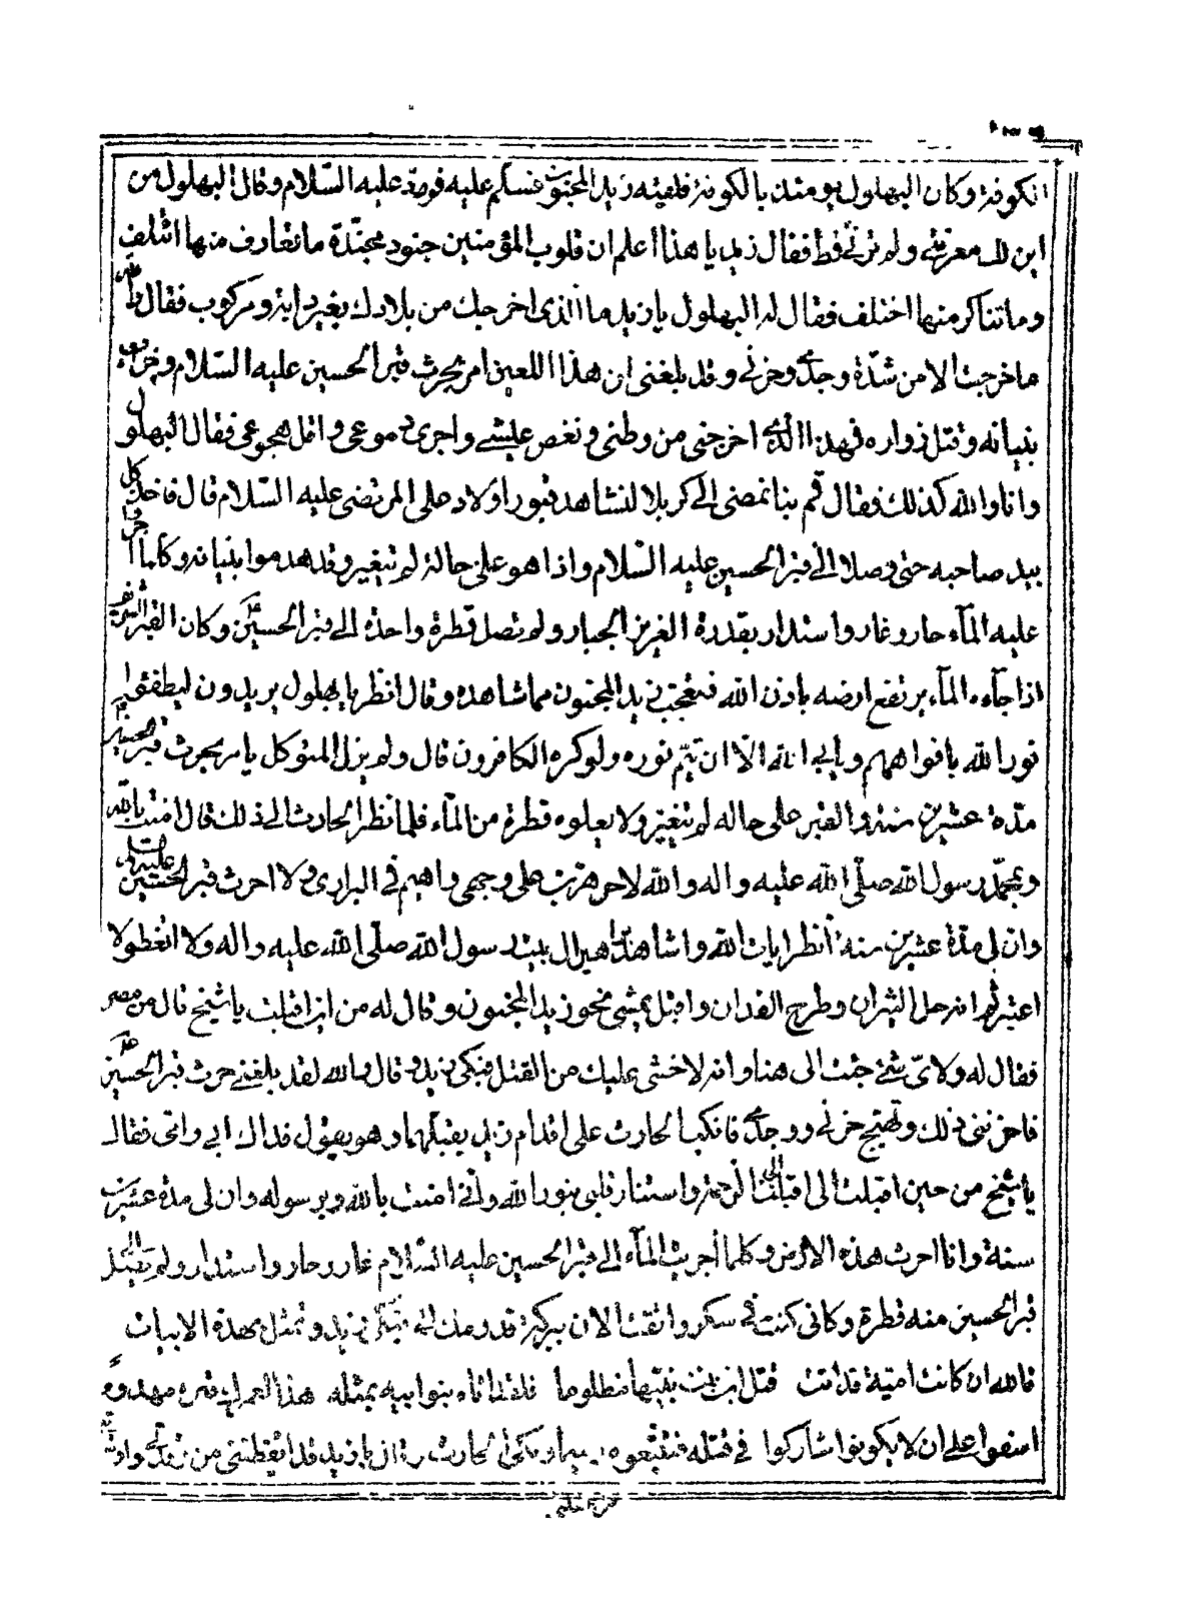 الكوفة وكان البهلول يومئذ بالكوفة فلقيه زيد المجنون فسلم عليه فرد عليه السّلام وقال البهلول من
اين لك معرفتي ولم ترني قط فقال زيد يا هذا اعلم ان قلوب المؤمنين جنود مجنّدة ما تعارف منها ائتلف
وما تناكر منها اختلف فقال له البهلول يا زيد ما الذي اخرجك من بلادك بغير دابة ومركوب فقال
ما خرجت الا من شدّة وجدي وحزني وقد بلغني ان هذا اللعين امر بحرث قبر الحسين عليه السّلام وخراب
بنيانه وقتل زواره فهذا الذي اخرجني من وطني ونغص عيشي واجرى دموعي واقل هجوعي فقال البهلول
وانا والله كذلك فقال قم بنا نمضي الى كربلا لنشاهد قبور اولاد علي المرتضى عليه السّلام قال فاخذ كل
بيد صاحبه حتى وصلا الى قبر الحسين عليه السّلام واذا هو على حالة لم تتغير وقد هدموا بنيانه وكلما اجروا
عليه المآء حار وغار واستدار بقدرة العزيز الجبار ولم تصل قطرة واحدة الى قبر الحسين وكان القبر الشريف
اذا جآءه المآء يرتفع ارضه باذن الله فتعجب زيد المجنون مما شاهده وقال انظر يا بهلول يريدون ليطفئوا
نور الله بافواههم ويابى الله الّا ان يتمّ نوره ولو كره الكافرون قال ولم يزل المتوكل يامر بحرث قبر الحسين
مدّة عشرين سنة والقبر على حاله لم تتغيّر ولا يعلوه قطرة من المآء فلما نظر الحارث الى ذلك قال امنت بالله
وبمحمّد رسول الله صلّى الله عليه واله والله لاهربن على وجهي واهيم في البراري ولا احرث قبر الحسين عليه السلام
وان لي مدّة عشرين سنة انظر ايات الله واشاهد براهين ال بيت رسول الله صلّى الله عليه واله ولا اتعظ ولا
اعتبر ثم انه حل الثيران وطرح الفدان واقبل يمشي نحو زيد المجنون وقال له من اين اقبلت يا شيخ قال من مصر
فقال له ولاىّ شئ جئت الى هنا وانه لاخشى عليك من القتل فبكى زيد وقال والله لقد بلغني حرث قبر الحسين
فاحزنني ذلك وهيّج حزني ووجدي فانكب الحارث على اقدام زيد يقبلهما وهو يقول فداك ابي وامي فقال
يا شيخ من حين اقبلت الي اقبلت الي الرحمة واستنار قلبي بنور الله واني امنت بالله وبرسوله وان لي مدة عشرين
سنة وانا احرث هذه الارض وكلما اجريت المآء الى قبر الحسين عليه السّلام غار وحار واستدار ولم تصل الى
قبر الحسين منه قطرة وكاني كنت في سكر وافقت الان ببركة قدومك الي فبكى زيد وتمثل بهذه الابيات
تالله ان كانت امية قد اتت قتل ابن بنت نبيها مظلوما فلقد اتاه بنو ابيه بمثله هذا لعمرك قبره مهدوما
اسفوا على ان لا يكونوا شاركوا في قتله فتتبعوه رميما وبكى الحارث وقال يا زيد قد ايقظتني من رقدتي